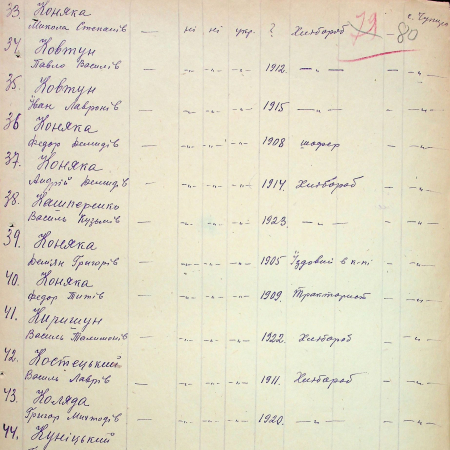 33. Коняка
Микола Степанів — ні ні укр. ? Хлібороб — с. 
79 80
34. Ковтун
Павло Василів — -„- -„- -„- 1912. —„— — -„-
35. Ковтун
Іван — -„- -„- -„- 1915 —„— — -„-
36 Коняка
Федор Демидів — -„- -„- -„- 1908 шофер — -„-
37. Коняка
Андрій Демидів — -„- -„- -„- 1914. Хлібороб — -„-
38. Кашперенко
Василь Кузьмів — -„- -„- -„- 1923. —„— — -„-
39. Коняка
Демян Григорів — -„- -„- -„- 1905 Їздовий в к-пі — -„-
40. Коняка
Федор Титів — -„- -„- -„- 1909. Тракторист — -„-
41. Киришун
Василь — -„- -„- -„- 1922. Хлібороб — -„-
42. Костецький
Василь Лаврів — -„- -„- -„- 1911. Хлібороб — -„-
43. Коляда
Григор — -„- -„- -„- 1920. —„— — -„-
44. Куніцький